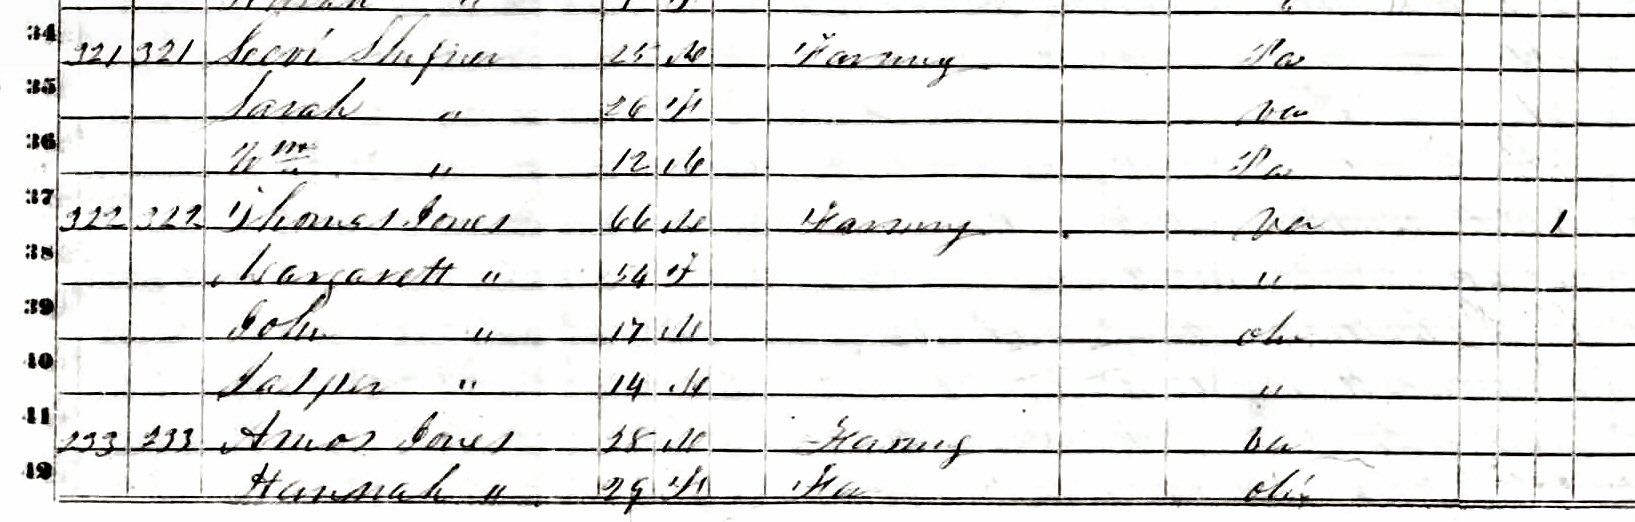 34 321 321 25 M Farming Pa
35 Sarah " 26 F Va
36 Wm " 12 M Pa
37 322 322 Thomas Jones 66 M Farming Va 1
38 Margarett " 54 F "
39 John " 17 M Oh
40 Jasper " 14 M "
41 233 233 Amos Jones 28 M Farmg Va
42 Hannah " 29 F Fa Ohi